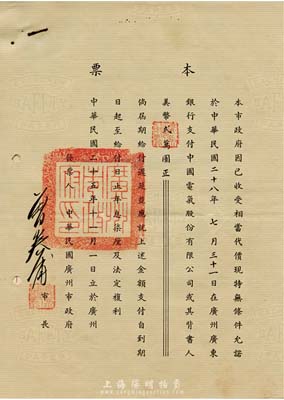 本票
本市政府因已收受相當代價現特無條件允諾
於中華民國二十八年七月三十一日在廣州廣東
銀行支付中國電氣股份有限公司或其背書人
美幣弍萬圓正
倘屆期給付遲延並應就上述金額支付自到期
日起至給付日止年息柒厘及法定複利
中華民國二十五年十一月一日立於廣州
發票人 中華民國廣州市政府
市長
曾養甫
上海陽明拍賣